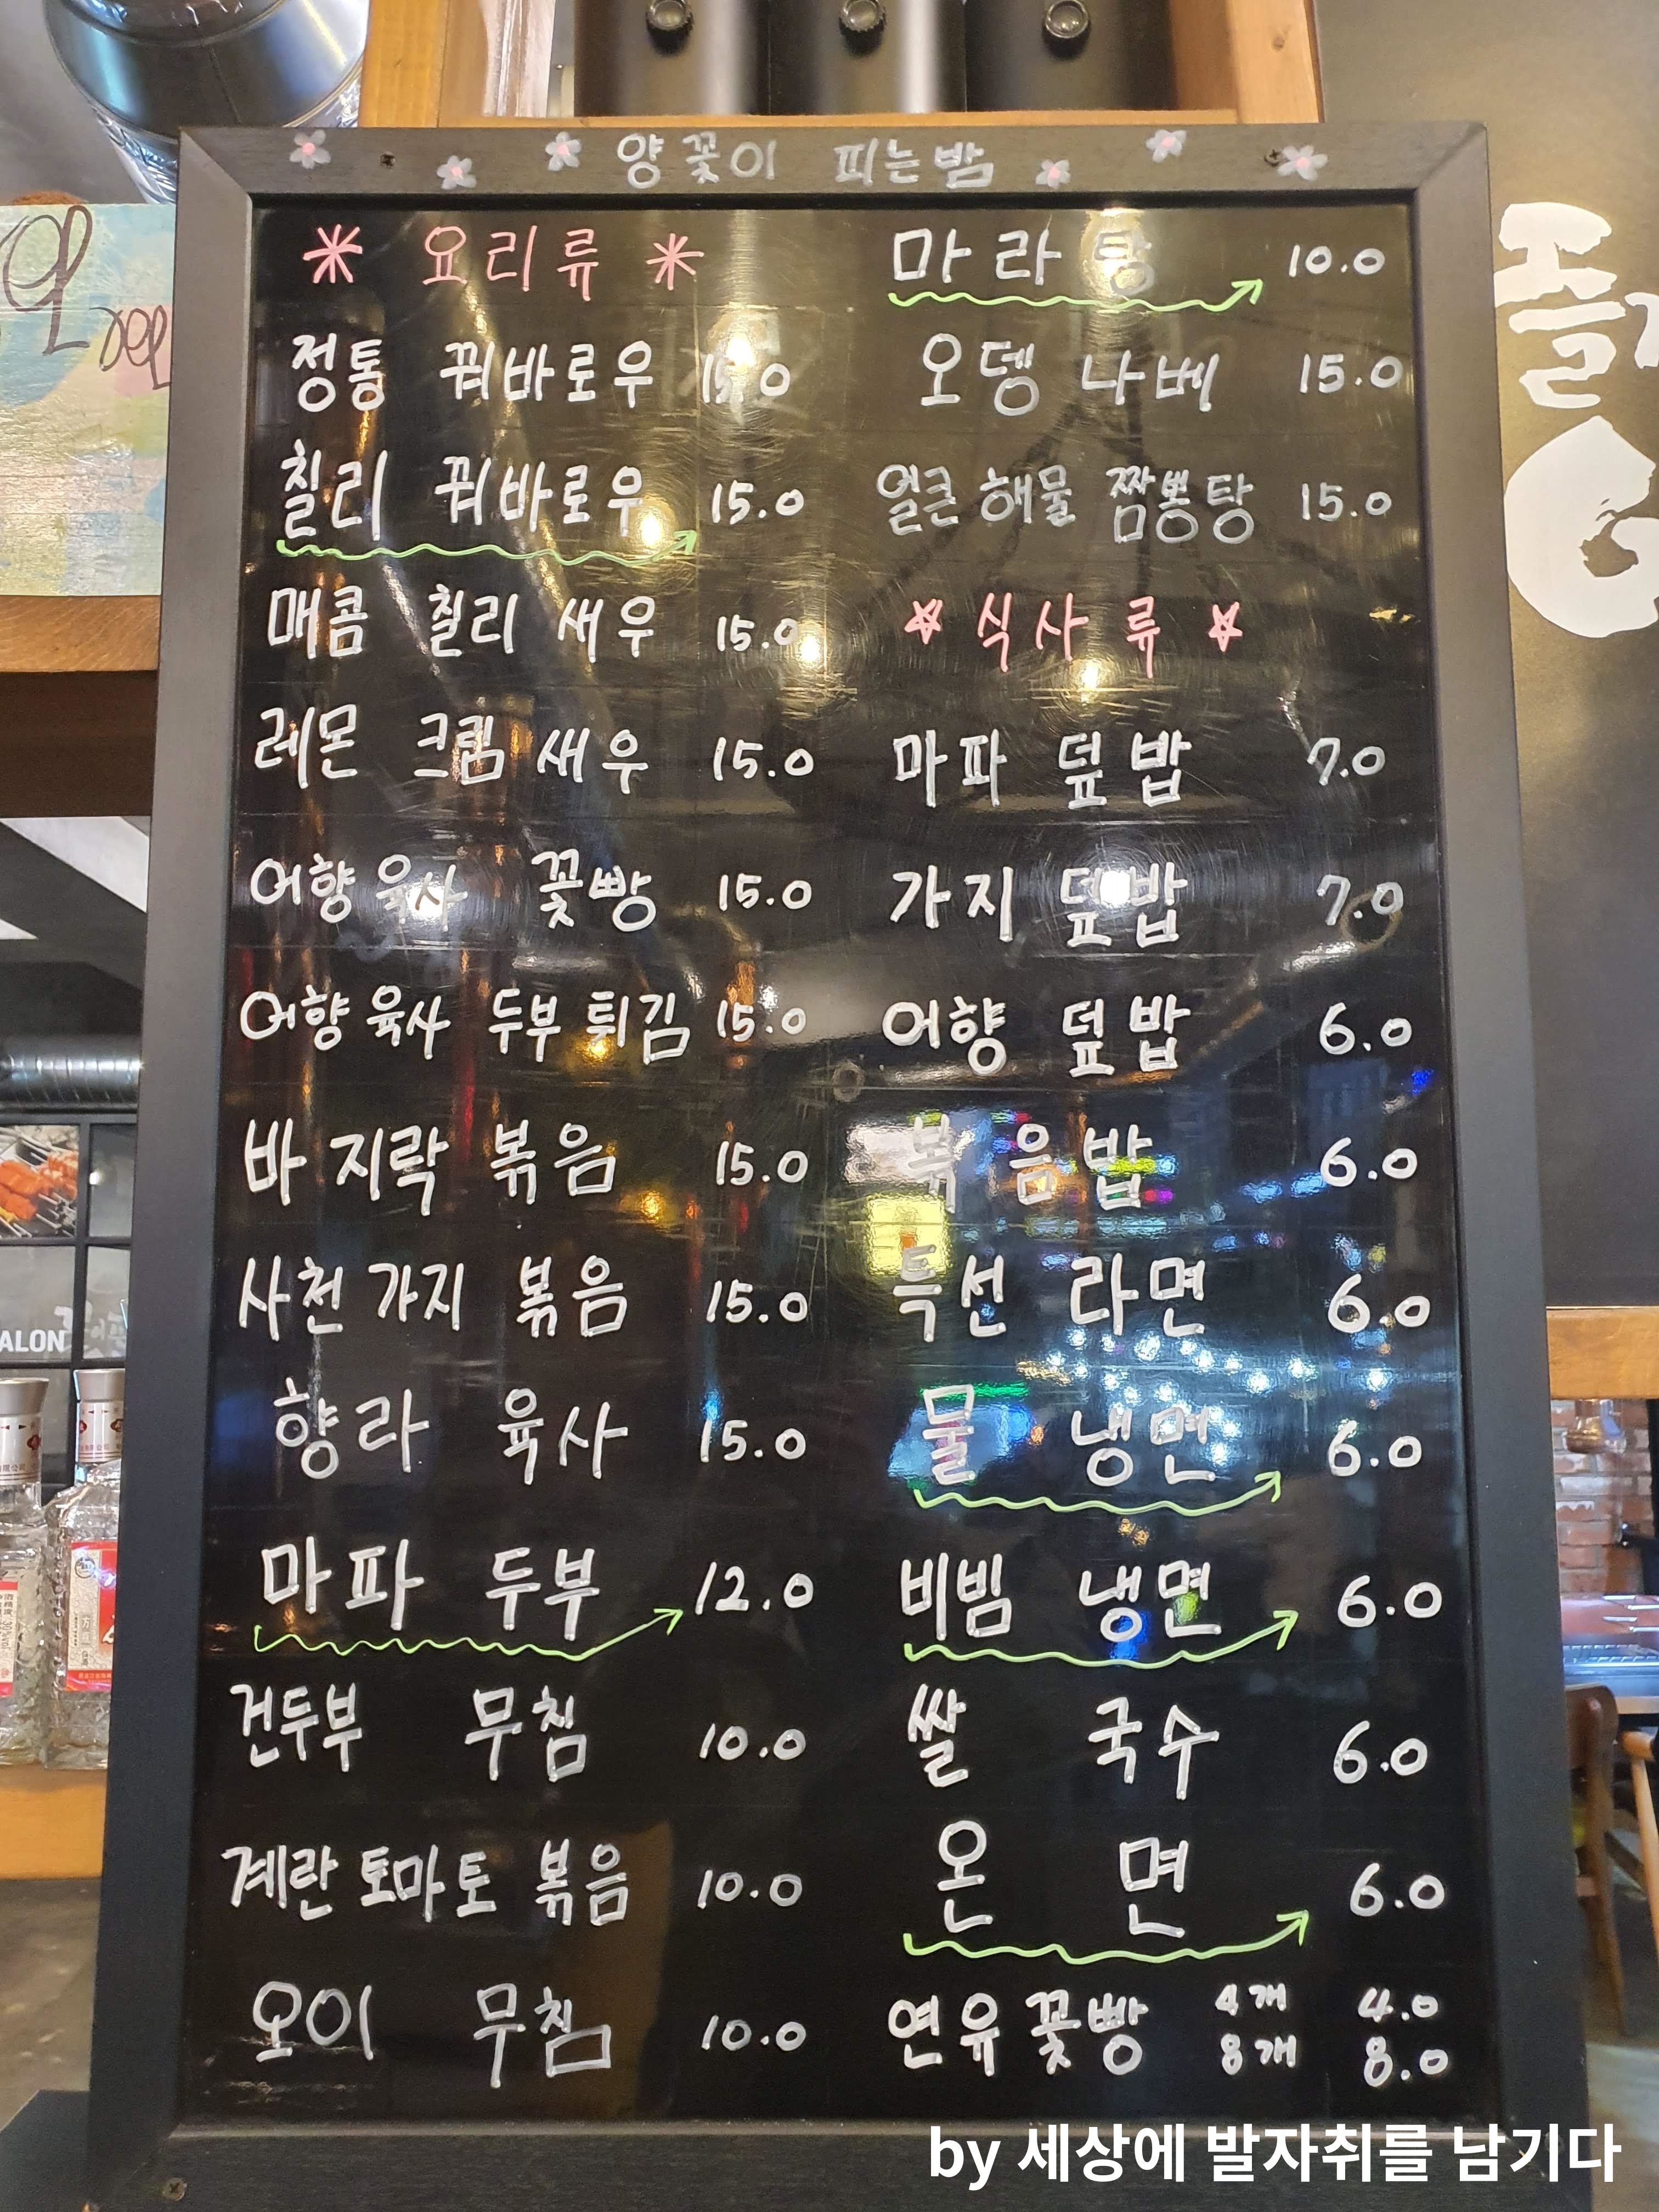 양꽃이 피는밤
* 요리류 *
정통 꿔바로우 15.0
칠리 꿔바로우 15.0
매콤 칠리 새우 15.0
레몬 크림 새우 15.0
어향육사 꽃빵 15.0
어향육사 두부 튀김 15.0
바지락 볶음 15.0
사천가지 볶음 15.0
향라 육사 15.0
마파 두부 12.0
건두부 무침 10.0
계란토마토 볶음 10.0
오이 무침 10.0
마라탕 10.0
오뎅 나베 15.0
얼큰 해물 짬뽕탕 15.0
☆ 식사류 ☆
마파 덮밥 7.0
가지 덮밥 7.0
어향 덮밥 6.0
볶음밥 6.0
특선 라면 6.0
물 냉면 6.0
비빔 냉면 6.0
쌀 국수 6.0
온 면 6.0
연유 꽃빵 4개 4.0
8개 8.0
ALON
by 세상에 발자취를 남기다